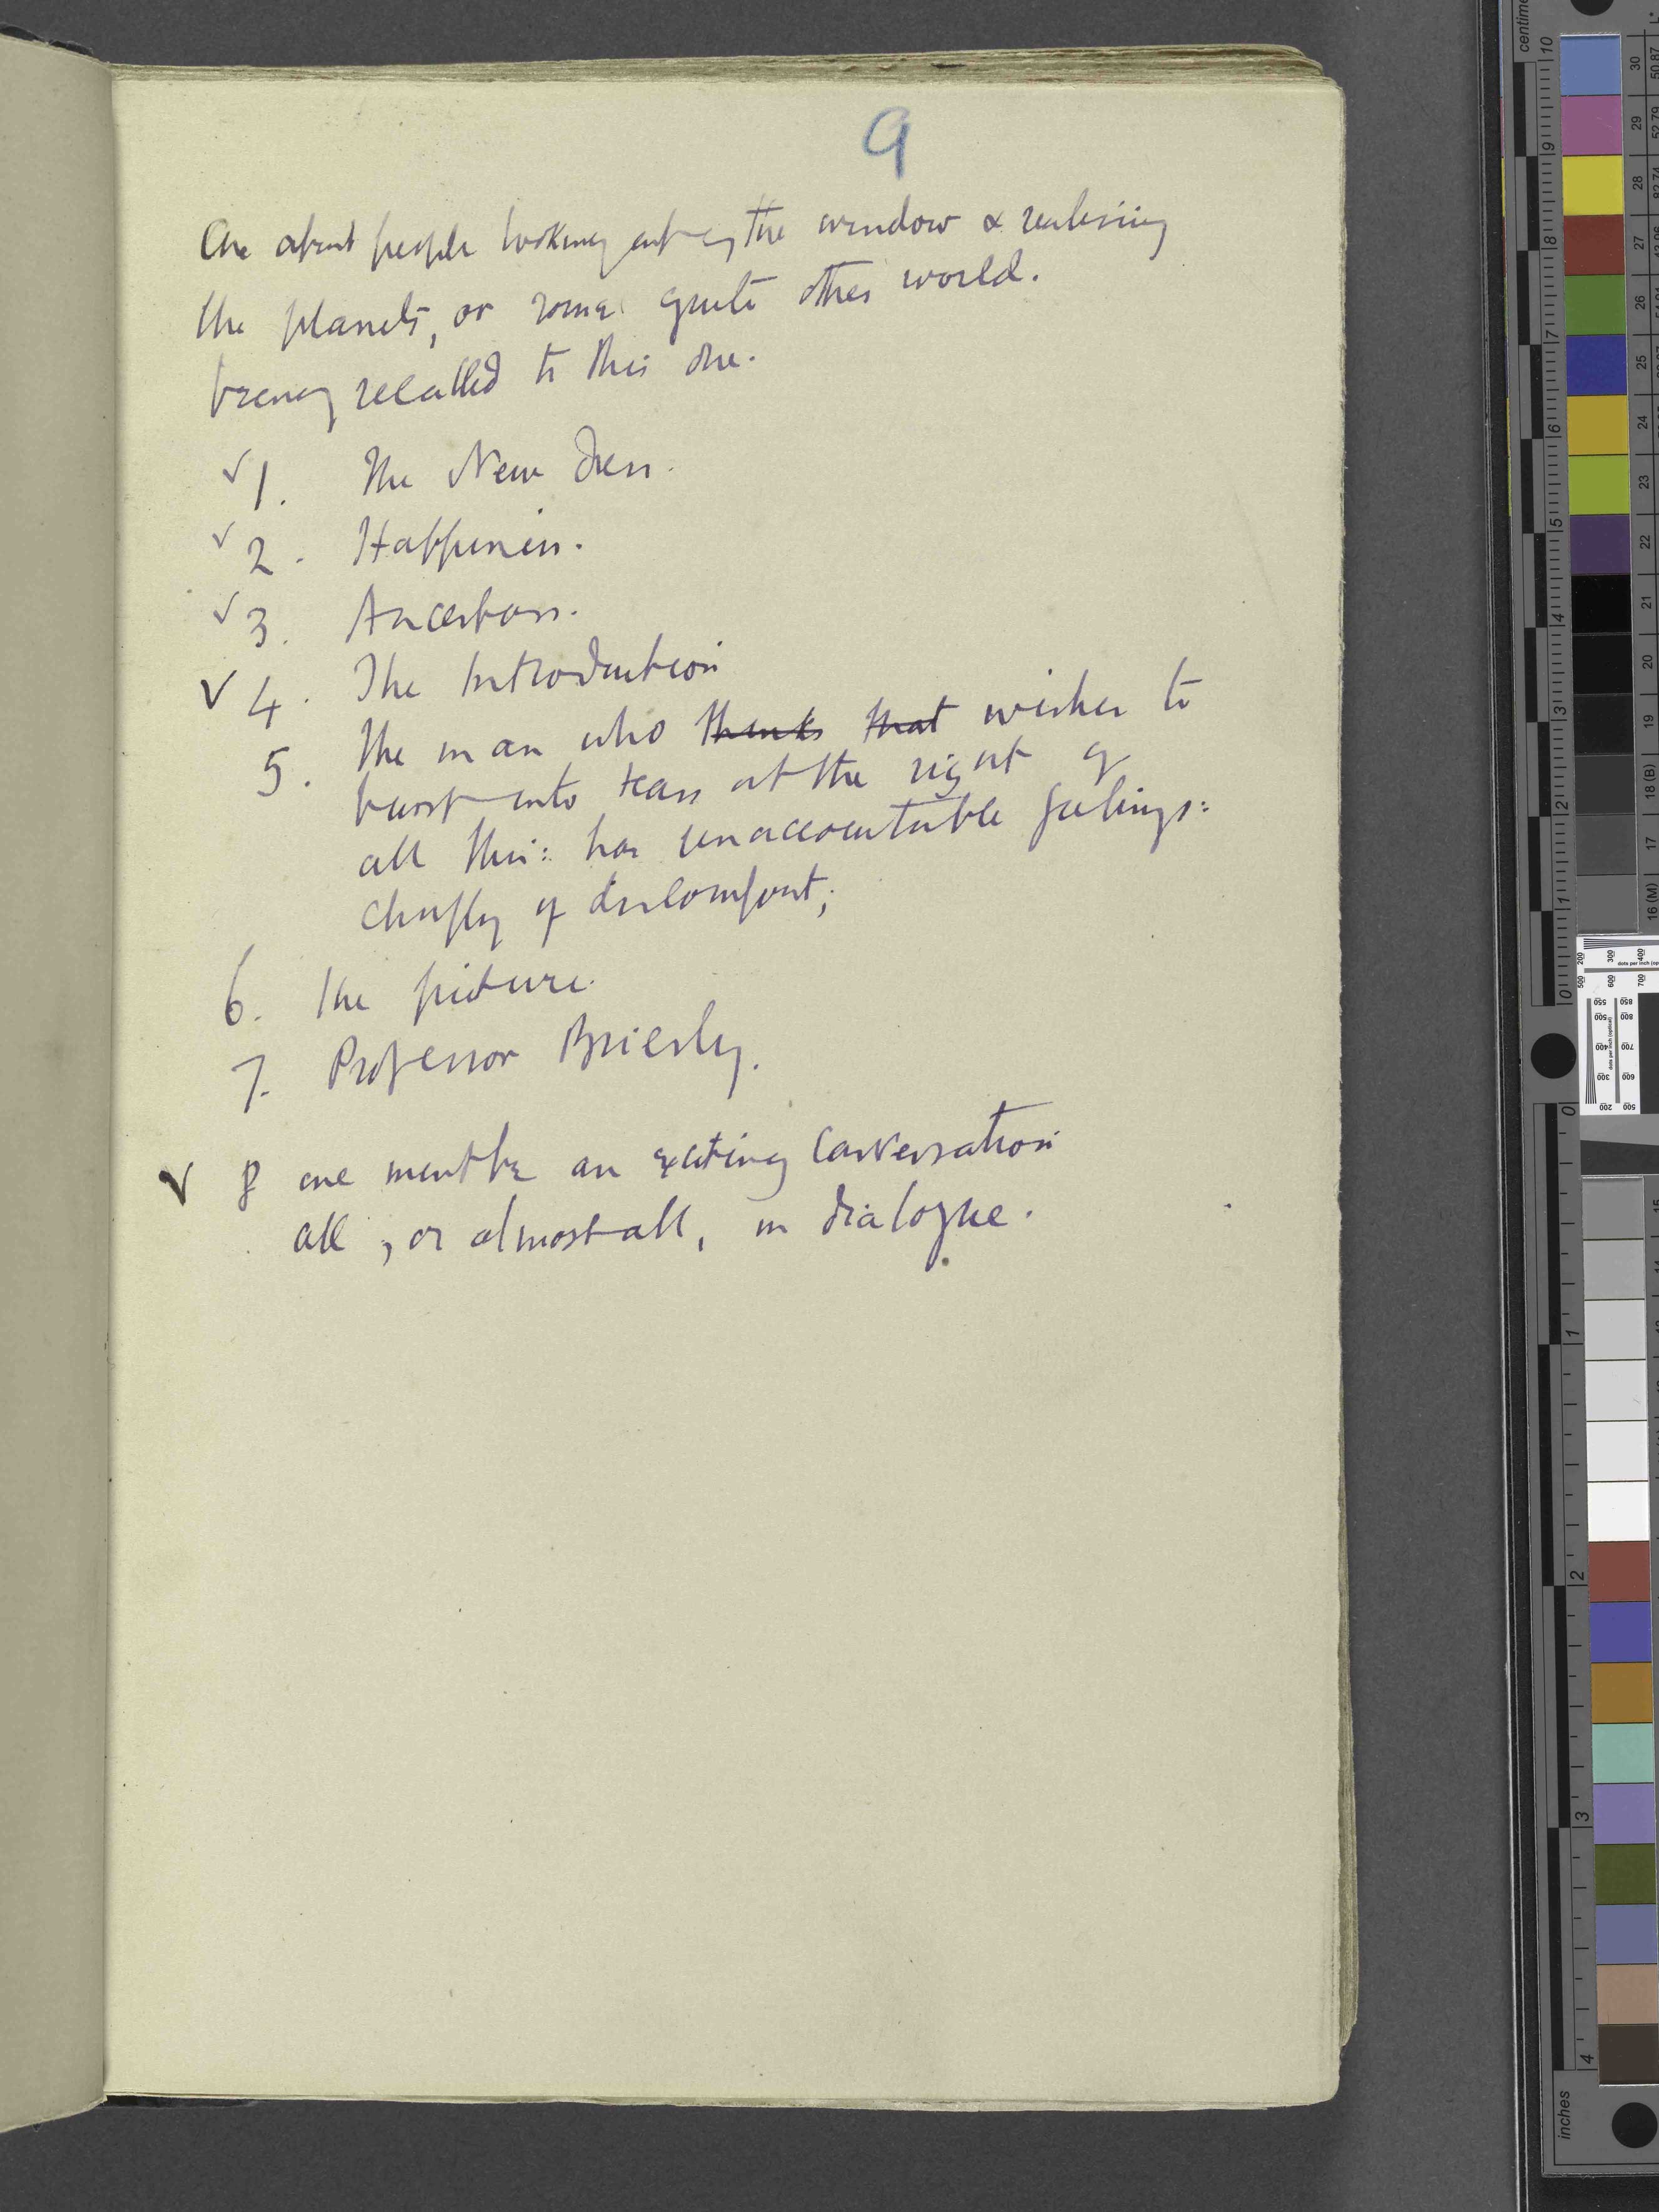 9
One about people looking out of the window & realising
the planets, or some quite other world.
being recalled to this one.
✓ 1. The New Dress.
✓ 2. Happiness.
✓ 3. Ancestors.
✓ 4. The Introduction
5. The man who thinks that wishes to
burst into tears at the sight of
all this: has unaccountable feelings:
chiefly of discomfort;
6. The picture.
7. Professor Brierly.
✓ 8 one must be an exciting conversation
all, or almost all, in dialogue.
centime
10 9 8 7 6 5 4 3 2 1 0
30 29 28 27 26 25 24 23 22 21 20 19 18 (B) 17 16 (M)
50.87
52.79
L*
200 300 400
dots per inch
500 600 700
0 1 2 3 4
inches